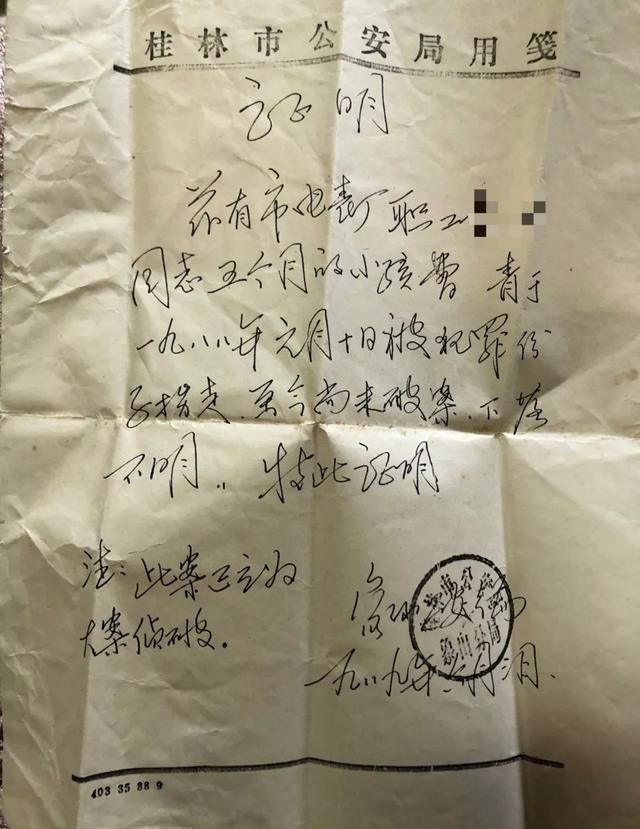 桂林市公安局用笺
证明
兹有市电表厂职工
同志五个月的小孩曹 青于
一九八八年元月十日被犯罪份
子指走.至今尚未破案.下落
不明,, 特此证明
注:此案已立为
大案侦破。
象山分局
一九八九年 月 日.
403 35 88 9